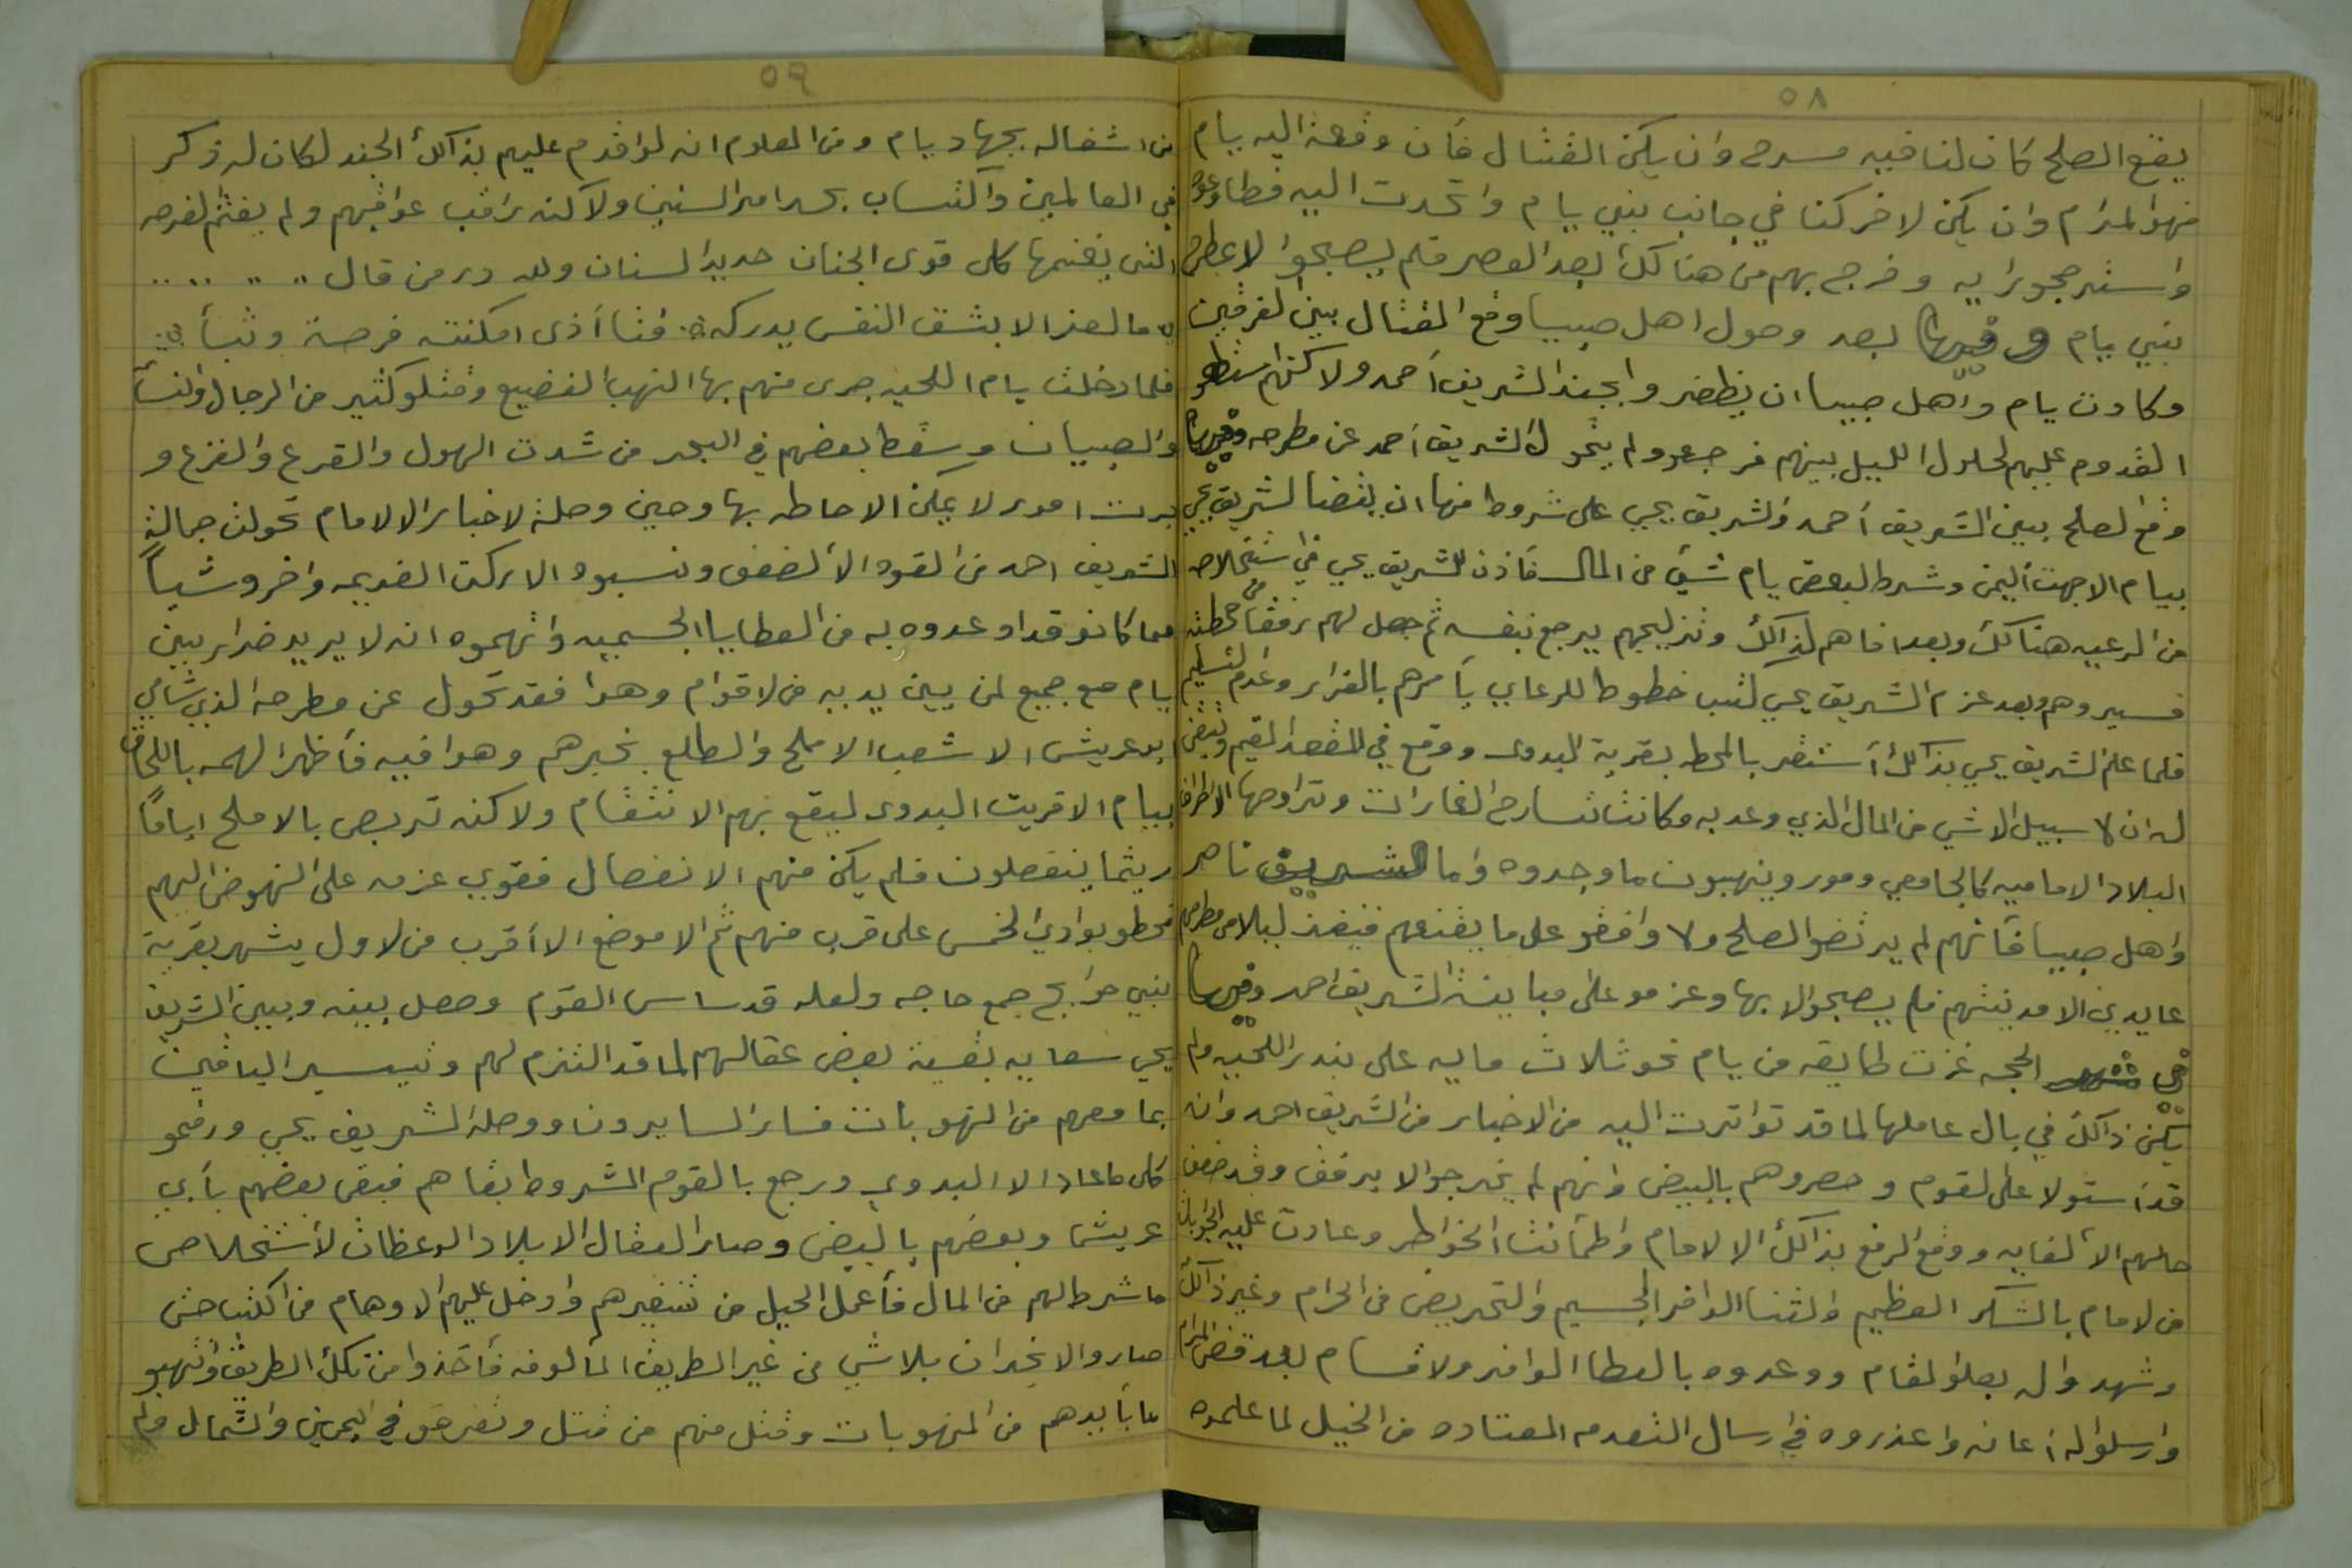 ٥٨
يقع الصلح كان لنا فيه مسرح وان يكن القتال فأن وقعة اليه يام
فهو المرام وان يكن لاخر كنا في جانب بني يام وانحدرت اليه فطاوعوه
واسترجحو رايه وخرج بهم من هنا لك بعد العصر فلم يصبحوا لا عطرح
بني يام وفيها بعد وصول اهل صبيا وقع القتال بين لفرقين
وكادت يام واهل صبيا ان يظفرو ابجند الشريف أحمد ولاكنهم
القدوم عليهم لحلول الليل بينهم فرجعو ولم يتحول الشريف أحمد عن مطرحه وفيها
وقع لصلح بين الشريف أحمد والشريف يحي على شروط منها ان يفضا لشريف يحي
بيام الا جهت أليمن وشرط لبعض يام شيئ من المال فأذن للشريف يحي في ستخلاصه
من الرعيه هنا لك وبعد افاهم لذالك وتزليجهم يرجع بنفسه ثم جعل لهم رفقا من حطته
فسيروهم وبعد عزم الشريف يحي كتب خطوط للرعايي يأمرهم بالفرار وعدم لتسليم
فلما علم الشريف يحي بذالك أستقر بالمحط بقرية البدوى ووقع في المقعد المقيم وتيقن
له ان لا سبيل الا شي من المال الذي وعد به وكانت تسارح الغارات وتراوحها الاطراف
البلاد الاماميه كالجامعي ومور وينهبون ما وجدوه واما الشريف ناصر
واهل صبيا فأنهم لم يرتضو الصلح ولا وافقو على ما يقنعهم فنفذ ليلا من مطرحهم
عايدين الا مدينتهم فلم يصبحوا لا بها وعزمو على مباينة الشريف احمد وفيها
في شهر الحجه غزت طايفه من يام نحو ثلاث مايه على بندر اللحيه ولم
يكن ذالك في بال عاملها لما قد تواترت اليه من الاخبار من الشريف احمد وانه
قد أستولا على لقوم وحصروهم بالبيض وانهم لم يخرجوا لا برفق وقد ضعف
حالهم الا ألغايه ووقع الرفع بذالك الا لامام واطمأنت الخواطر وعادت عليه الجوابات
من لامام بالشكر العظيم والثنا الوافر الجسيم والتحريض من الحرام وغير ذالك
وشهدوا له بعلو لمقام ووعدوه بالعطا الوافر ولاقسام بعد قضى لمرام
وارسلوا له أعانه واعذروه في رسال التقدمه المعتاده من الخيل لما علموه
٥٩
من اشغاله بجهاد يام ومن المعلوم انه لواقدم عليهم بذالك الجند لكان له ذكر
في العالمين واكتساب بحد امر السنين ولاكنه راقب عواقبهم ولم يغتنم لفرصه
التى يغنمها كل قوى الجنان حديد السنان ولله در من قال
ما لعز الا بشق النفس يدركه فتا أذى امكنته فرصة وثبأ
فلما دخلت يام اللحيه جرى منهم بها النهب الفضيع وقتلو كثير من الرجال ولنسأ
والصبيان وسقط بعضهم في البحر من شدت الهول والقرع والفزع و
جرت امور لا يمكن الاحاطه بها وحين وصلة لاخبار الا لامام تحولت جمالة
الشريف احمد من القوه الا ألضعف ونسبوه الا ركت القديمه واخرو شيأ
مما كانو قد اوعدوه به من العطايا الجسميه واتهموه انه لا يريد ضرار بين
يام مع جميع لمن بين يديه من لاقوام وهوا فقد تحول عن مطرحه الذي شامي
ابو عريش الا شعب الاملح والطلع بخبرهم وهوا فيه فأظهر الهمه باللحاق
بيام الا قريت البدوى ليقع بهم الانتقام ولاكنه تربص بالاملح اياماً
ريثما ينفصلون فلم يكن منهم الا نفصال فقوي عزمه على النهوض اليهم
فحطو بوادي الخمس على قرب منهم ثم الا موضع الا أقرب من لاول يشهر بقرية
بني حوايج جمع حاجه ولعله قد ساس القوم وحصل بينه وبين الشريف
يحي سعايه بقسية بعض عقالهم لما قد التزم لهم وتيسير الباقين
بما معهم من النهوبات فسار السايرون ووصلة الشريف يحي ورفعو
كل ما عاد الا البدوي ورجع بالقوم المشروط بقاهم فبقى بعضهم بأبي
عريش وبعضهم بالبيض وصار العقال الا بلاد الوعظات لأستخلاص
ما شرط لهم من المال فأعمل الحيل من تنفيرهم وادخل عليهم الا وهام من اكتب حتى
صارو الا نجران بلاشي من غير الطريق المألوفه فأخذوا من تكلك الطريق وانتهبو
ما بأيدهم من المنهوبات وقتل منهم من قتل وتفرقو في اليمين والشمال ولم